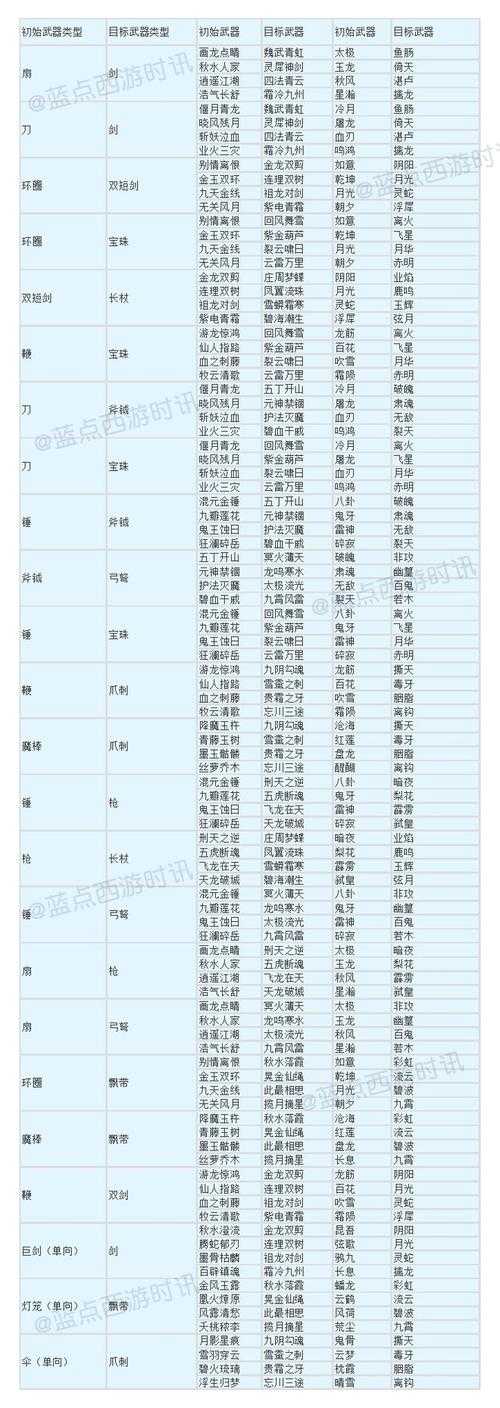 初始武器类型 目标武器类型 初始武器 目标武器 初始武器 目标武器
扇 剑
画龙点睛 魏武青虹 太极 鱼肠
秋水人家 灵犀神剑 玉龙 倚天
逍遥江湖 四法青云 秋风 湛卢
浩气长舒 霜冷九州 星瀚 擒龙
刀 剑
偃月青龙 魏武青虹 冷月 鱼肠
晓风残月 灵犀神剑 屠龙 倚天
斩妖泣血 四法青云 血刃 湛卢
业火三灾 霜冷九州 鸣鸿 擒龙
环圈 双短剑
别情离恨 金龙双剪 如意 阴阳
金玉双环 连理双树 乾坤 月光
九天金线 祖龙对剑 月光 灵蛇
无关风月 紫电青霜 朝夕 浮犀
环圈 宝珠
别情离恨 回风舞雪 如意 离火
金玉双环 紫金葫芦 乾坤 飞星
九天金线 裂云啸日 月光 月华
无关风月 云雷万里 朝夕 赤明
双短剑 长杖
金龙双剪 庄周梦蝶 阴阳 业焰
连理双树 凤翼流珠 月光 鹿鸣
祖龙对剑 雪蟒霜寒 灵蛇 玉辉
紫电青霜 碧海潮生 浮犀 弦月
鞭 宝珠
游龙惊鸿 回风舞雪 龙筋 离火
仙人指路 紫金葫芦 百花 飞星
血之刺藤 裂云啸日 吹雪 月华
牧云清歌 云雷万里 霜陨 赤明
刀 斧钺
偃月青龙 五丁开山 冷月 破魄
晓风残月 元神禁锢 屠龙 肃魂
斩妖泣血 护法灭魔 血刃 无敌
业火三灾 碧血干戚 鸣鸿 裂天
刀 宝珠
偃月青龙 回风舞雪 冷月 离火
晓风残月 紫金葫芦 屠龙 飞星
斩妖泣血 裂云啸日 血刃 月华
业火三灾 云雷万里 鸣鸿 赤明
锤 斧钺
混元金锤 五丁开山 八卦 破魄
九瓣莲花 元神禁锢 鬼牙 肃魂
鬼王蚀日 护法灭魔 雷神 无敌
狂澜碎岳 碧血干戚 碎寂 裂天
斧钺 弓弩
五丁开山 冥火薄天 破魄 非攻
元神禁锢 龙鸣寒水 肃魂 幽篁
护法灭魔 太极流光 无敌 百鬼
碧血干戚 九霄风雷 裂天 若木
锤 宝珠
混元金锤 回风舞雪 八卦 离火
九瓣莲花 紫金葫芦 鬼牙 飞星
鬼王蚀日 裂云啸日 雷神 月华
狂澜碎岳 云雷万里 碎寂 赤明
鞭 爪刺
游龙惊鸿 九阴勾魂 龙筋 撕天
仙人指路 雪蚕之刺 百花 毒牙
血之刺藤 贵霜之牙 吹雪 胭脂
牧云清歌 忘川三途 霜陨 离钩
魔棒 爪刺
降魔玉杵 九阴勾魂 沧海 撕天
青藤玉树 雪蚕之刺 红莲 毒牙
墨玉骷髅 贵霜之牙 盘龙 胭脂
丝萝乔木 忘川三途 醍醐 离钩
锤 枪
混元金锤 刑天之逆 八卦 暗夜
九瓣莲花 五虎断魂 鬼牙 梨花
鬼王蚀日 飞龙在天 雷神 霹雳
狂澜碎岳 天龙破城 碎寂 弑皇
枪 长杖
刑天之逆 庄周梦蝶 暗夜 业焰
五虎断魂 凤翼流珠 梨花 鹿鸣
飞龙在天 雪蟒霜寒 霹雳 玉辉
天龙破城 碧海潮生 弑皇 弦月
锤 弓弩
混元金锤 冥火薄天 八卦 非攻
九瓣莲花 龙鸣寒水 鬼牙 幽篁
鬼王蚀日 太极流光 雷神 百鬼
狂澜碎岳 九霄风雷 碎寂 若木
扇 枪
画龙点睛 刑天之逆 太极 暗夜
秋水人家 五虎断魂 玉龙 梨花
逍遥江湖 飞龙在天 秋风 霹雳
浩气长舒 天龙破城 星瀚 弑皇
扇 弓弩
画龙点睛 冥火薄天 太极 非攻
秋水人家 龙鸣寒水 玉龙 幽篁
逍遥江湖 太极流光 秋风 百鬼
浩气长舒 九霄风雷 星瀚 若木
环圈 飘带
别情离恨 秋水落霞 如意 彩虹
金玉双环 晃金仙绳 乾坤 流云
九天金线 此最相思 月光 碧波
无关风月 揽月摘星 朝夕 九霄
魔棒 飘带
降魔玉杵 秋水落霞 沧海 彩虹
青藤玉树 晃金仙绳 红莲 流云
墨玉骷髅 此最相思 盘龙 碧波
丝萝乔木 揽月摘星 长息 九霄
鞭 双剑
游龙惊鸿 金龙双剪 龙筋 阴阳
仙人指路 连理双树 百花 月光
血之刺藤 祖龙对剑 吹雪 灵蛇
牧云清歌 紫电青霜 霜陨 浮犀
巨剑（单向） 剑
秋水澄流 金龙双剪 昆吾 阴阳
腾蛇郁刃 连理双树 弦歌 月光
墨骨枯麟 祖龙对剑 鸦九 灵蛇
百辟镇魂 霜冷九州 长息 擒龙
灯笼（单向） 飘带
金风玉露 秋水落霞 蟠龙 彩虹
凰火燎原 晃金仙绳 云鹤 流云
风露清愁 此最相思 风荷 碧波
夭桃秾李 揽月摘星 荒尘 九霄
伞（单向） 爪刺
月影星痕 九阴勾魂 鬼骨 撕天
雪羽穿云 雪蚕之刺 云梦 毒牙
碧火琉璃 贵霜之牙 枕霞 胭脂
浮生归梦 忘川三途 晴雪 离钩
@蓝点西游时讯
@蓝点西游时讯
@蓝点西游时讯
@蓝点西游时讯
@蓝点西游时讯
@蓝点西游时讯
@蓝点西游时讯